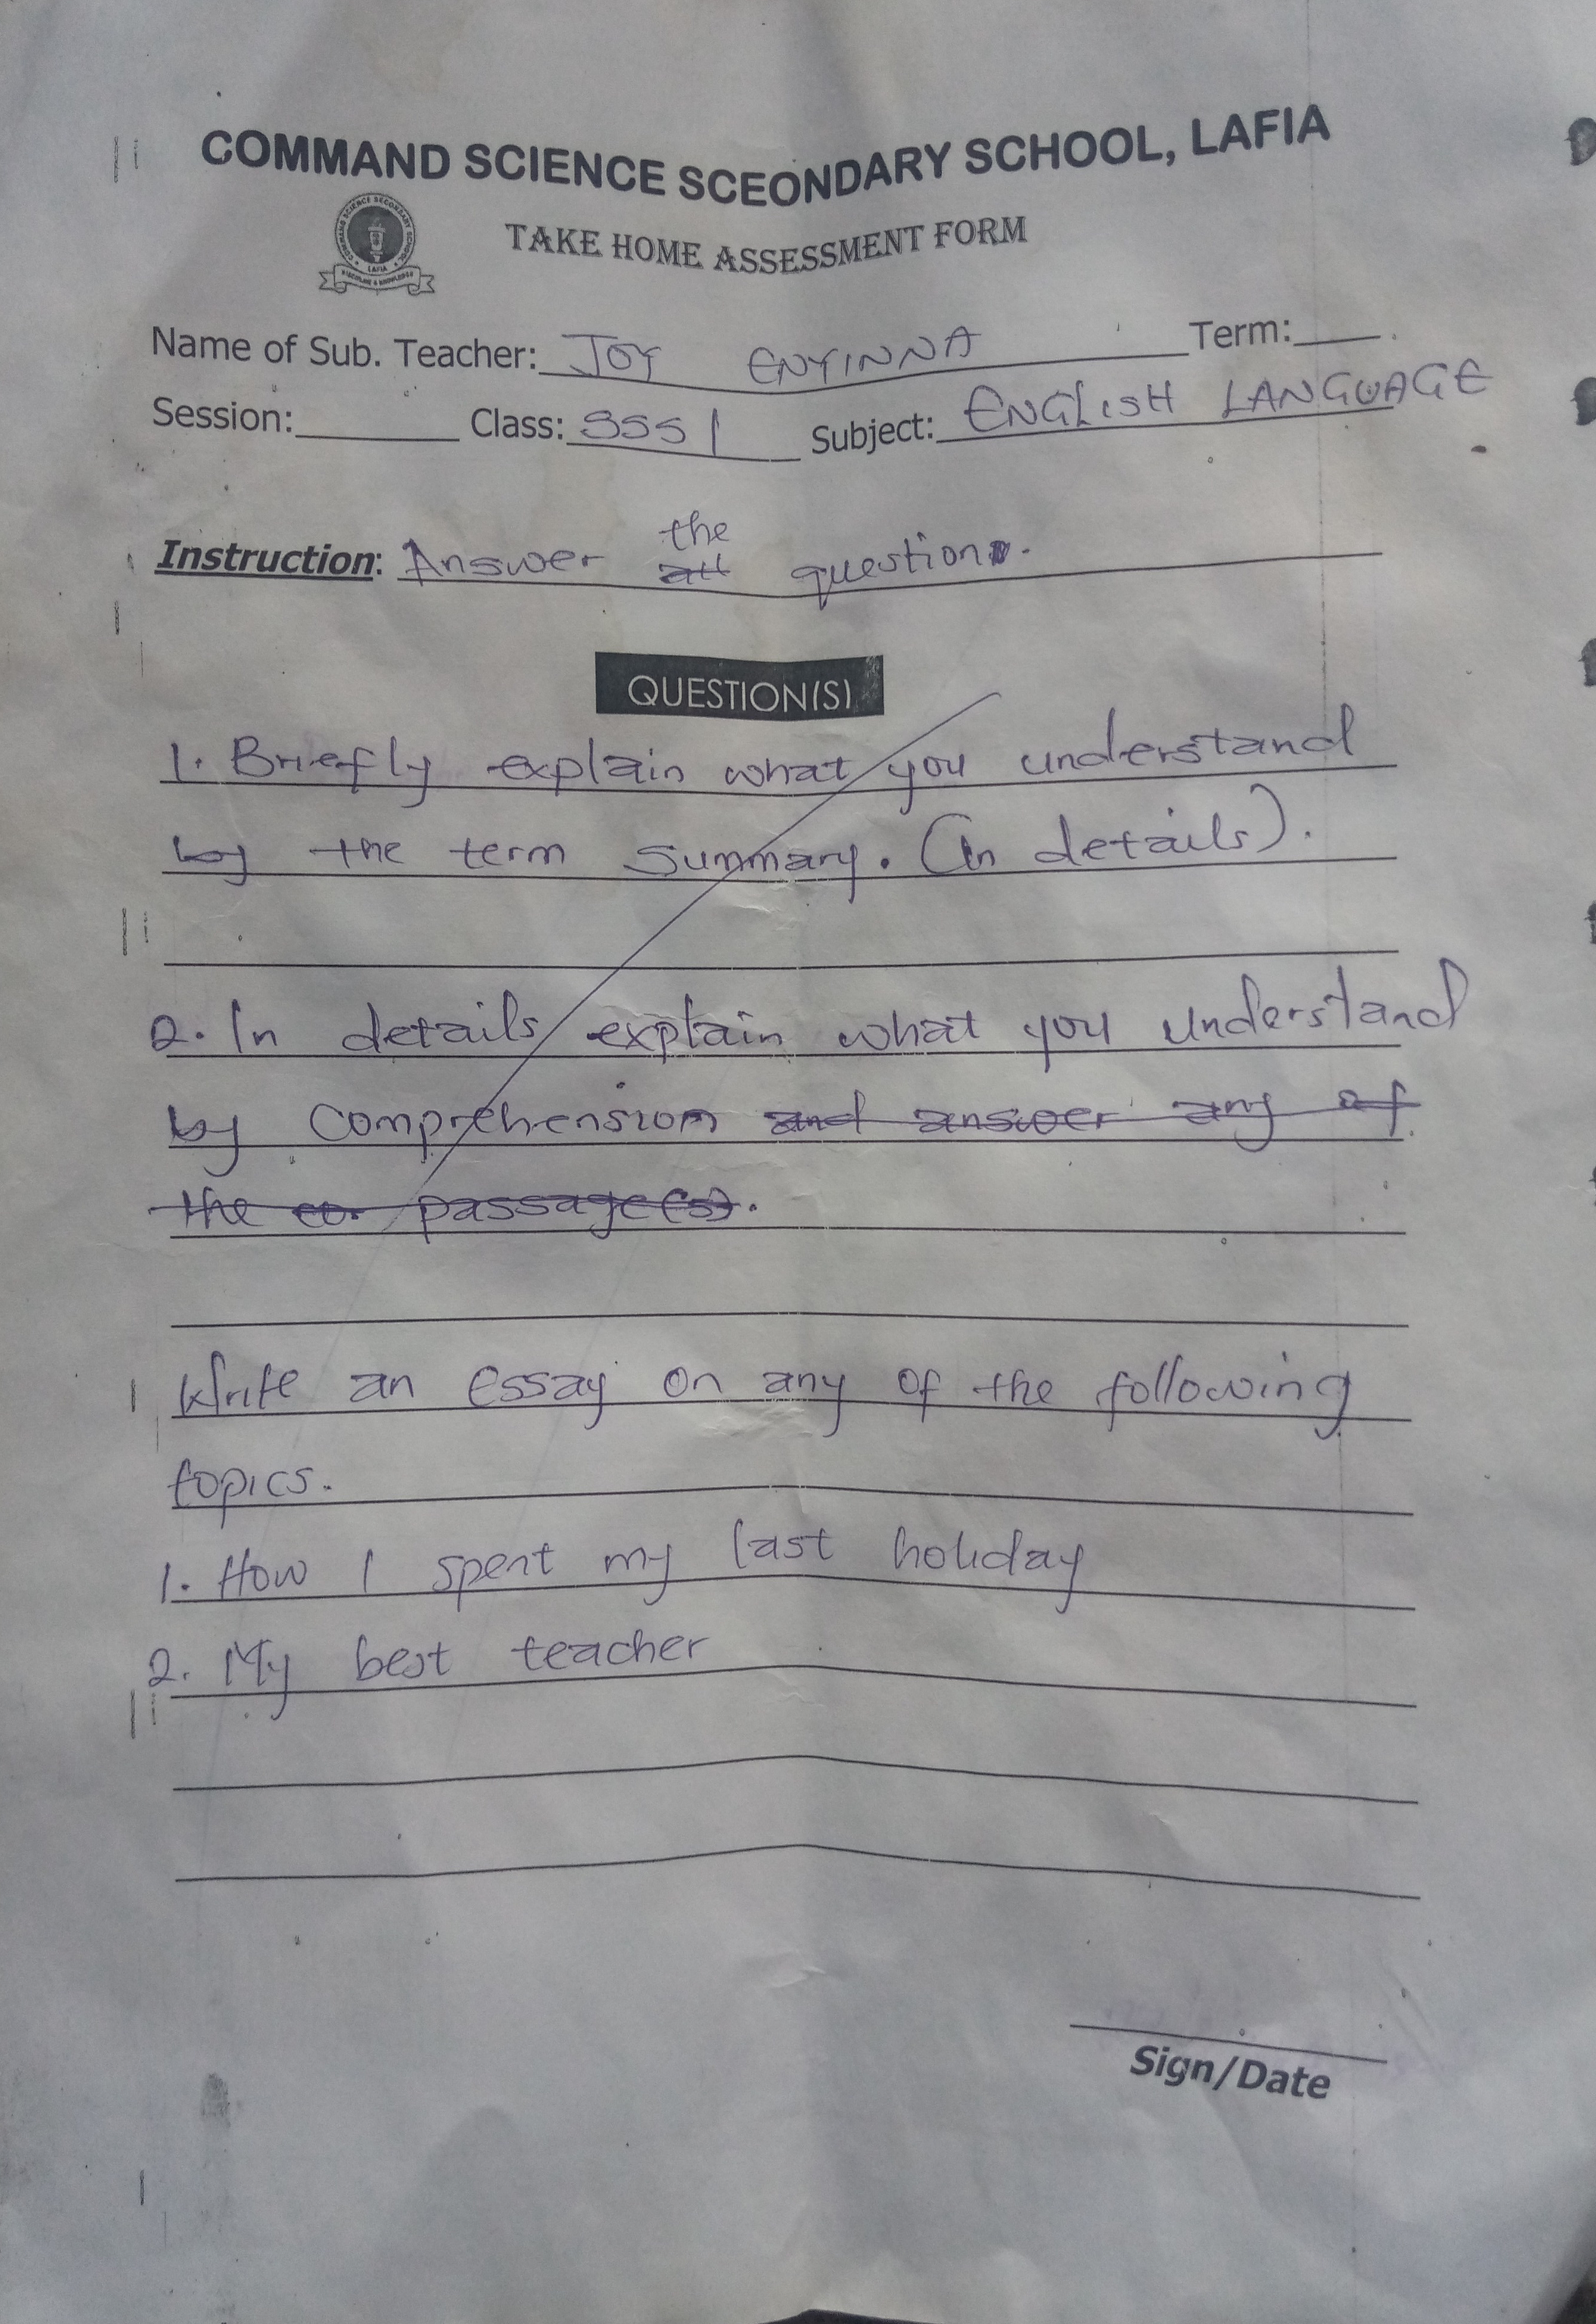 COMMAND SCIENCE SCEONDARY SCHOOL, LAFIA
COMMAND SCIENCE SECONDARY SCHOOL
LAFIA
TAKE HOME ASSESSMENT FORM
Name of Sub. Teacher: JOY ENYINNA Term:
Session: Class: SSS 1 Subject: ENGLISH LANGUAGE
the
Instruction: Answer all question.
QUESTION(S)
1. Briefly explain what you understand
by the term summary. (In details).
2. In details explain what you understand
by comprehension and answer any of
the passage(s).
Write an essay on any of the following
topics.
1. How I spent my last holiday
2. My best teacher
Sign/Date